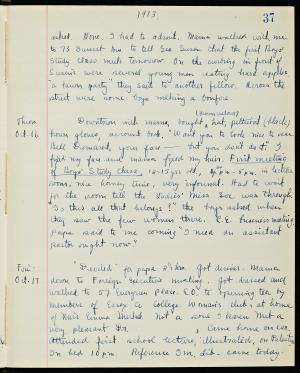 1913.
37
asked. None. I had to admit. Mama walked with me
to 73 Sunset Ave to tell Geo Swain that the first Boys'
Study Class meets tomorrow. On the curbing in front of
Swain's were several young men eating hard apples
"a lawn party" they said to another fellow. Across the
street were some boys making a bonfire.
Thurs. Oct. 16
Downtown with mama, bought hat, petticoat (black)
brown gloves, account book. "Want you to look nice to see
Bell Bismarck, your face — but you do it." I
fixed my face and mama fixed my hair. First meeting
of Boys' Study Class, 15-18 yrs. old, 4 P.M - 5 P.M. in lecture
room, nice homey time, very informal. Had to wait
for the room till the Ladies' Miss. Soc. was through.
"Is this all that belongs?" the boys asked when
they saw the few women there. C.E. business meeting
Papa said to me coming "I need an assistant
pastor right now."
Fri. Oct. 17
"Deviled" for papa 2 1/2 hrs. Got dinner. Mama
down to Foreign Executive meeting. Got dressed and
walked to 57 Evergreen Place. E.O. to opening tea by
members of Essex Co College Woman's club, at home
of Miss Emma. Not a soul I knew. Met a
very pleasant Dr. Came home on car.
Attended first school lecture, illustrated, on
In bed 10 P.M. Reference Im. did. came today.